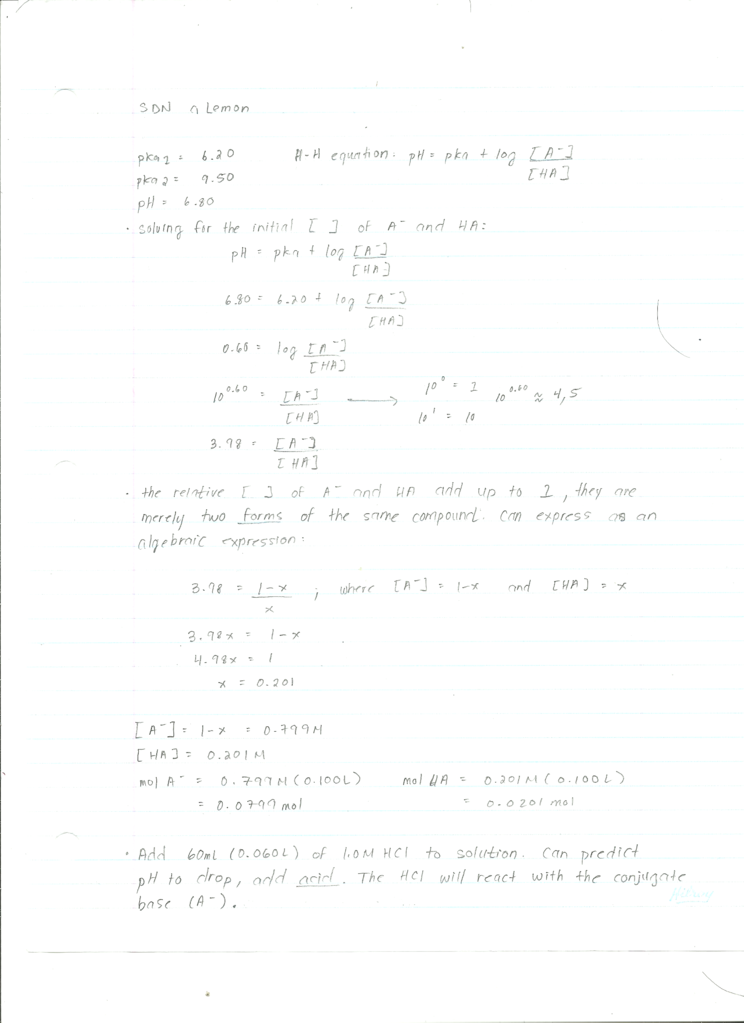 SDN a Lemon
pka1 = 6.20 H-H equation: pH = pka + log [A⁻]
pka2 = 9.50 [HA]
pH = 6.80
• solving for the initial [ ] of A⁻ and HA:
pH = pka + log [A⁻]
[HA]
6.80 = 6.20 + log [A⁻]
[HA]
0.60 = log [A⁻]
[HA]
10^0.60 = [A⁻] ⟶ 10^0 = 1 10^0.60 ≈ 4,5
[HA] 10^1 = 10
3.98 = [A⁻]
[HA]
• the relative [ ] of A⁻ and HA add up to 1, they are
merely two forms of the same compound. Can express as an
algebraic expression:
3.98 = 1-x ; where [A⁻] = 1-x and [HA] = x
x
3.98x = 1-x
4.98x = 1
x = 0.201
[A⁻] = 1-x = 0.799M
[HA] = 0.201M
mol A⁻ = 0.799M (0.100L) mol HA = 0.201M (0.100L)
= 0.0799 mol = 0.0201 mol
• Add 60mL (0.060L) of 1.0M HCl to solution. Can predict
pH to drop, add acid. The HCl will react with the conjugate
base (A⁻).